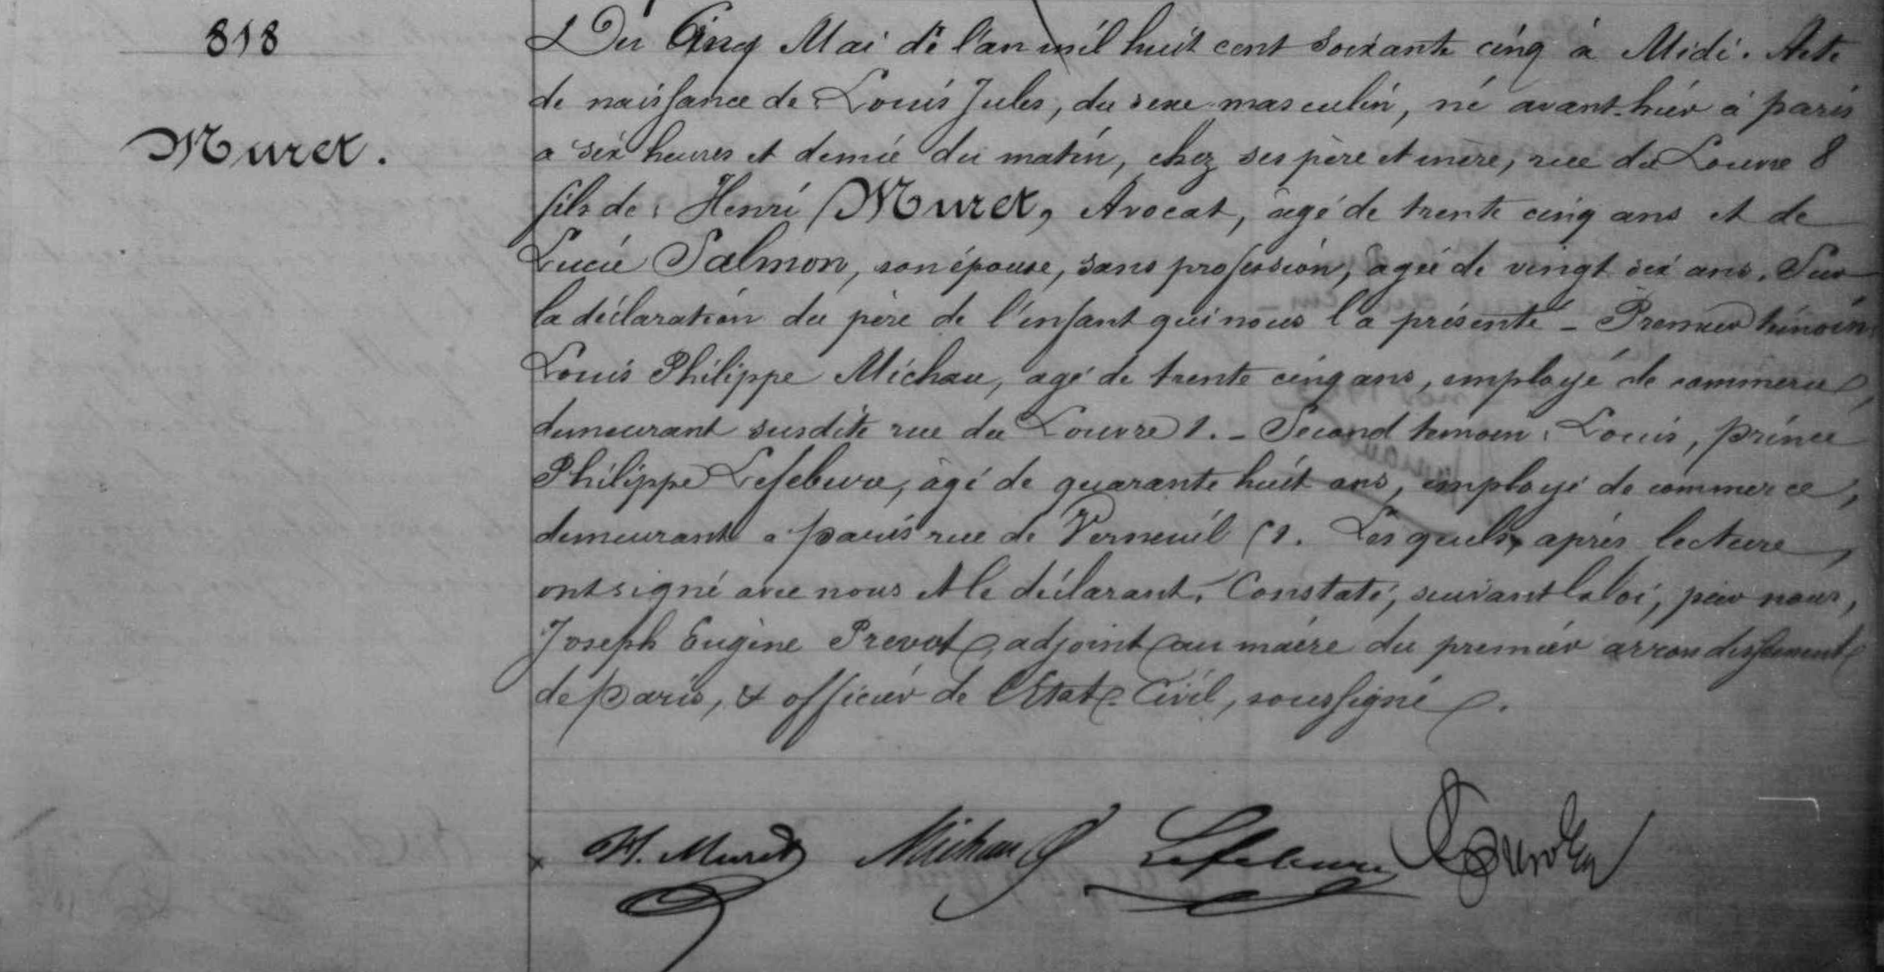 818
Muret.
Du Cinq Mai de l'an mil huit cent soixante cinq à Midi. Acte
de naissance de Louis Jules, du sexe masculin, né avant-hier à paris
a six heures et demie du matin, chez ses père et mère, rue du Louvre 8
fils de Henri Muret, Avocat, âgé de trente cinq ans et de
Lucie Salmon, son épouse, sans profession, agée de vingt six ans. Sur
la déclaration du père de l'enfant qui nous l'a présenté - Premier témoin
Louis Philippe Michau, agé de trente cinq ans, employé de commerce,
demeurant susdite rue du Louvre . - Second temoin: Louis, prince
Philippe Lefebure, âgé de quarante huit ans, employé de commerce,
demeurant a paris rue de Verneuil . Lesquels, après lecture,
ont signé avec nous et le déclarant. Constaté, suivant la loi, par nous,
Joseph Eugène Prevot adjoint au maire du premier arrondissement
de paris, & officier de l'Etat-Civil, soussigné.
H. Muret Michau Lefebure